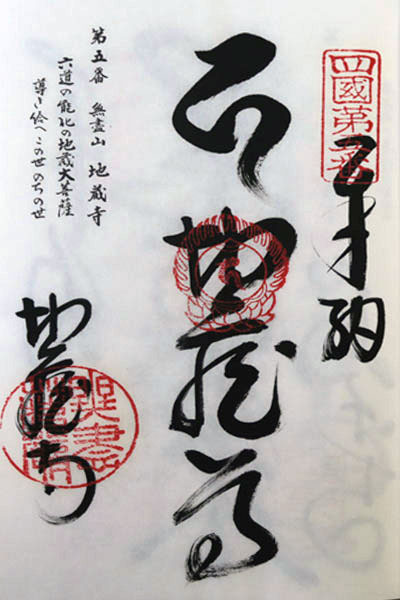 四國第五番
奉納
地蔵尊
第五番　無盡山　地蔵寺
六道の能化の地蔵大菩薩
導き給へこの世のちの世
地蔵寺